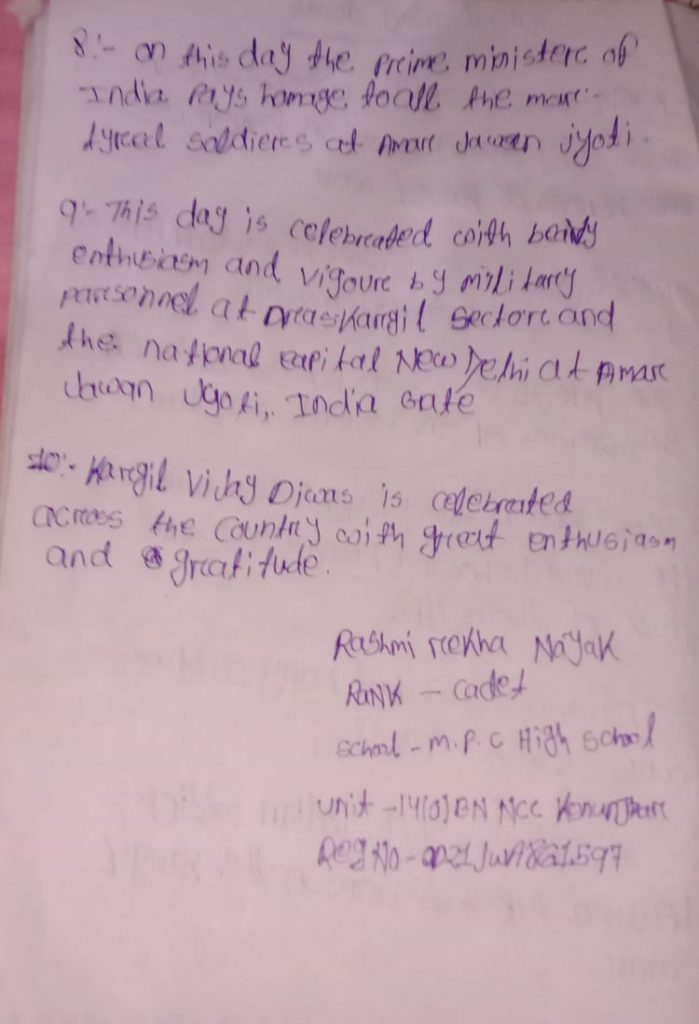 8:- on this day the preime ministere of
India Pays homage to all the marc-
tyreed soldieres at Amarc Jawan jyoti.
9:- This day is celebreated with
enthusiasm and vigoure by military
parcsonnel at Dreas Kargil sectore and
the national capital New Delhi at Amarc
Jawan Jyoti, India Gate
10:- Karegil Vijay Diwas is celebreated
acrcoss the country with great enthusiasm
and greatitude.
Rashmi rekha Nayak
RaNK - cadet
school - M.P.C High school
unit - 14(O) BN NCC
Reg No -